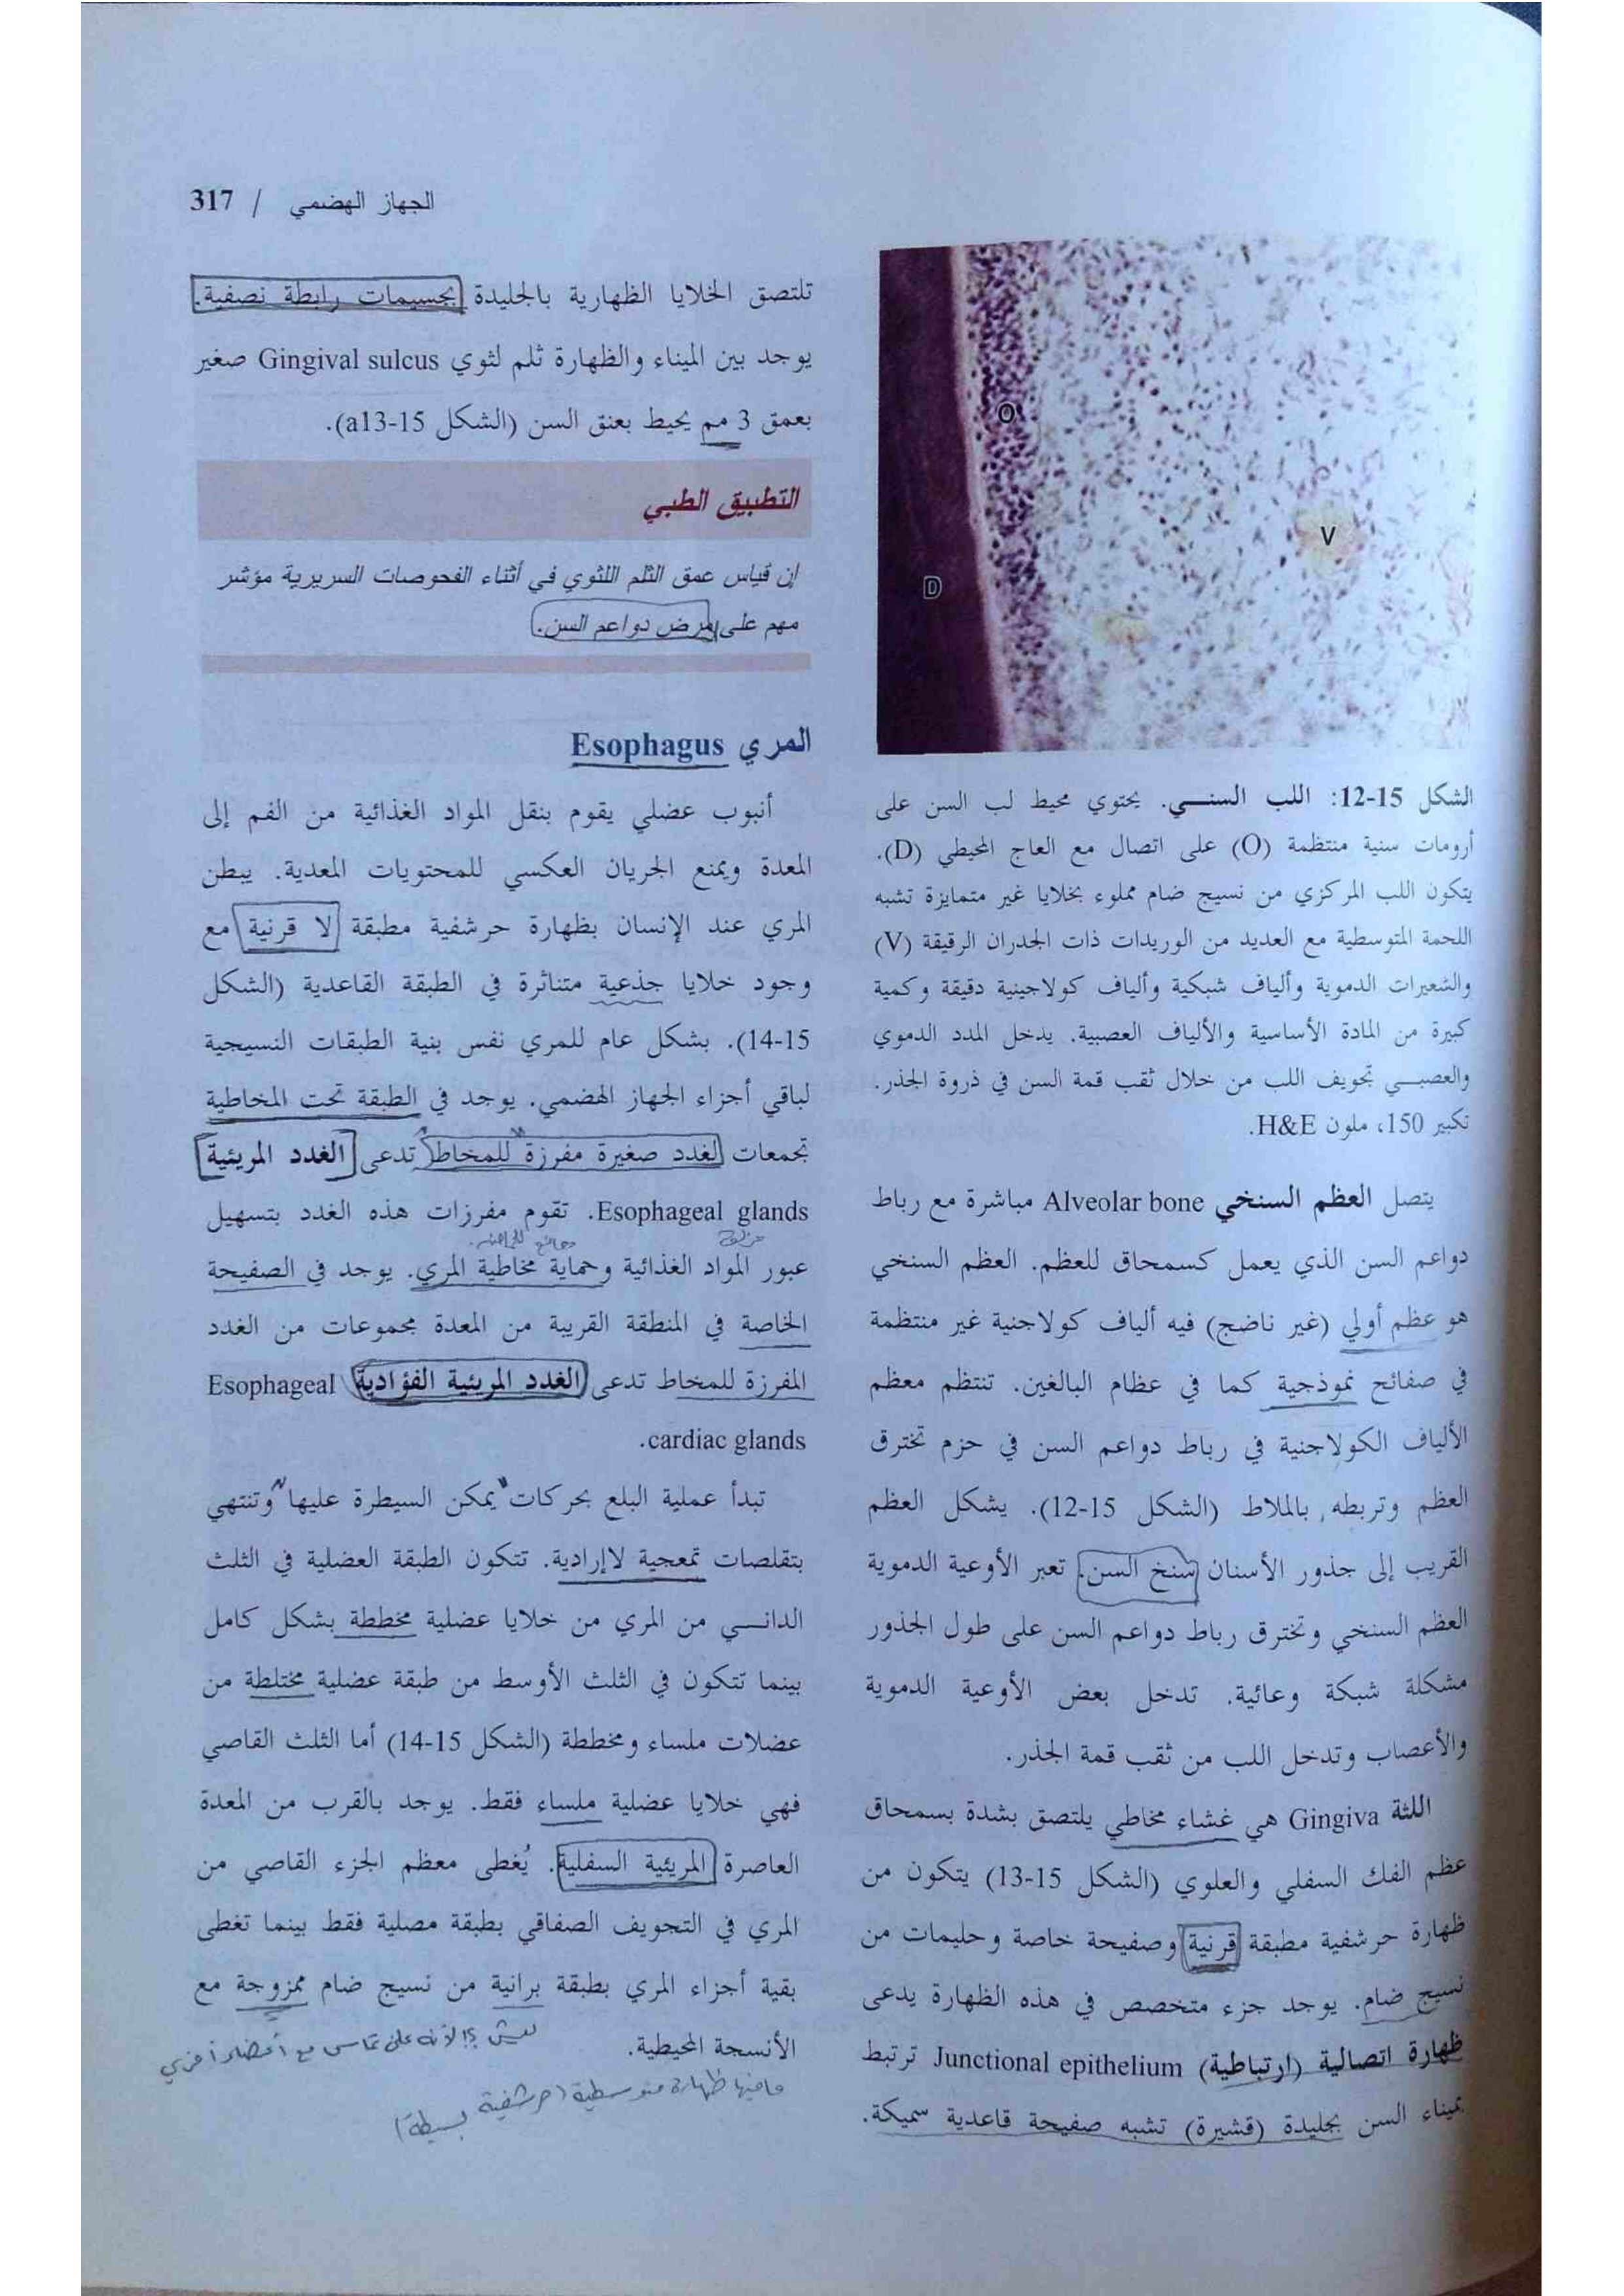 الجهاز الهضمي / 317
O
V
D
الشكل 15-12: اللب السنـي. يحتوي محيط لب السن على
أرومات سنية منتظمة (O) على اتصال مع العاج المحيطي (D).
يتكون اللب المركزي من نسيج ضام مملوء بخلايا غير متمايزة تشبه
اللحمة المتوسطية مع العديد من الوريدات ذات الجدران الرقيقة (V)
والشعيرات الدموية وألياف شبكية وألياف كولاجينية دقيقة وكمية
كبيرة من المادة الأساسية والألياف العصبية. يدخل المدد الدموي
والعصبـي تجويف اللب من خلال ثقب قمة السن في ذروة الجذر.
تكبير 150، ملون H&E.
يتصل العظم السنخي Alveolar bone مباشرة مع رباط
دواعم السن الذي يعمل كسمحاق للعظم. العظم السنخي
هو عظم أولي (غير ناضج) فيه ألياف كولاجنية غير منتظمة
في صفائح نموذجية كما في عظام البالغين. تنتظم معظم
الألياف الكولاجنية في رباط دواعم السن في حزم تخترق
العظم وتربطه بالملاط (الشكل 15-12). يشكل العظم
القريب إلى جذور الأسنان سنخ السن. تعبر الأوعية الدموية
العظم السنخي وتخترق رباط دواعم السن على طول الجذور
مشكلة شبكة وعائية. تدخل بعض الأوعية الدموية
والأعصاب وتدخل اللب من ثقب قمة الجذر.
اللثة Gingiva هي غشاء مخاطي يلتصق بشدة بسمحاق
عظم الفك السفلي والعلوي (الشكل 15-13) يتكون من
ظهارة حرشفية مطبقة قرنية وصفيحة خاصة وحليمات من
نسيج ضام. يوجد جزء متخصص في هذه الظهارة يدعى
ظهارة اتصالية (ارتباطية) Junctional epithelium ترتبط
بميناء السن بجليدة (قشيرة) تشبه صفيحة قاعدية سميكة.
تلتصق الخلايا الظهارية بالجليدة بجسيمات رابطة نصفية.
يوجد بين الميناء والظهارة ثلم لثوي Gingival sulcus صغير
بعمق 3 مم يحيط بعنق السن (الشكل 15-a13).
التطبيق الطبي
إن قياس عمق الثلم اللثوي في أثناء الفحوصات السريرية مؤشر
مهم على مرض دواعم السن.
المري Esophagus
أنبوب عضلي يقوم بنقل المواد الغذائية من الفم إلى
المعدة ويمنع الجريان العكسي للمحتويات المعدية. يبطن
المري عند الإنسان بظهارة حرشفية مطبقة لا قرنية مع
وجود خلايا جذعية متناثرة في الطبقة القاعدية (الشكل
15-14). بشكل عام للمري نفس بنية الطبقات النسيجية
لباقي أجزاء الجهاز الهضمي. يوجد في الطبقة تحت المخاطية
تجمعات لغدد صغيرة مفرزة للمخاط تدعى الغدد المريئية
Esophageal glands. تقوم مفرزات هذه الغدد بتسهيل
عبور المواد الغذائية وحماية مخاطية المري. يوجد في الصفيحة
الخاصة في المنطقة القريبة من المعدة مجموعات من الغدد
المفرزة للمخاط تدعى الغدد المريئية الفؤادية Esophageal
cardiac glands.
تبدأ عملية البلع بحركات يمكن السيطرة عليها وتنتهي
بتقلصات تمعجية لاإرادية. تتكون الطبقة العضلية في الثلث
الدانـي من المري من خلايا عضلية مخططة بشكل كامل
بينما تتكون في الثلث الأوسط من طبقة عضلية مختلطة من
عضلات ملساء ومخططة (الشكل 15-14) أما الثلث القاصي
فهي خلايا عضلية ملساء فقط. يوجد بالقرب من المعدة
العاصرة المريئية السفلية. يُغطى معظم الجزء القاصي من
المري في التجويف الصفاقي بطبقة مصلية فقط بينما تغطى
بقية أجزاء المري بطبقة برانية من نسيج ضام ممزوجة مع
الأنسجة المحيطية.
ليش ؟! لأنه على تماس مع أعضاء أخرى
مافيها ظهارة متوسطية (حرشفية بسيطة)